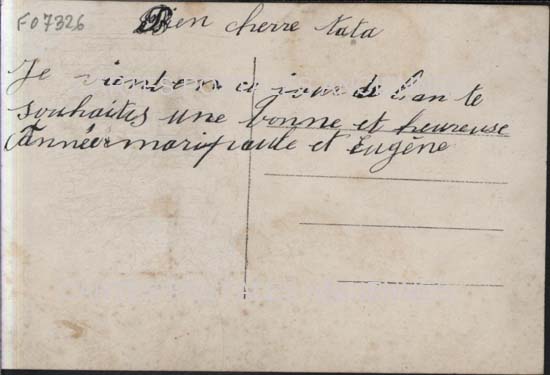 F07326
Bien cherre tata
Je vient en ce jour de l'an te
souhaites une bonne et heureuse
Année maripaule et Eugène